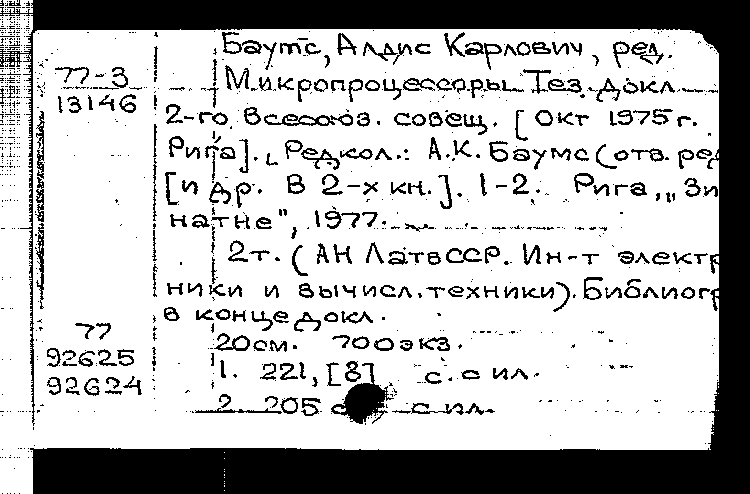 Баумс, Алдис Карлович, ред.
77-3
Микропроцессоры Тез. докл
13146
2-го Всесоюз. совещ. [Окт 1975г.
Рига]. Редкол.: А.К. Баумс (отв. ред
[и др. В 2-х кн.]. 1-2. Рига, „Зи
натне", 1977.
2т. (АН ЛатвССР. Ин-т электр
ники и вычисл. техники). Библиогр
в конце докл.
77
20см. 700экз.
92625
1. 221, [8] с. с ил.
92624
2. 205 с ил.